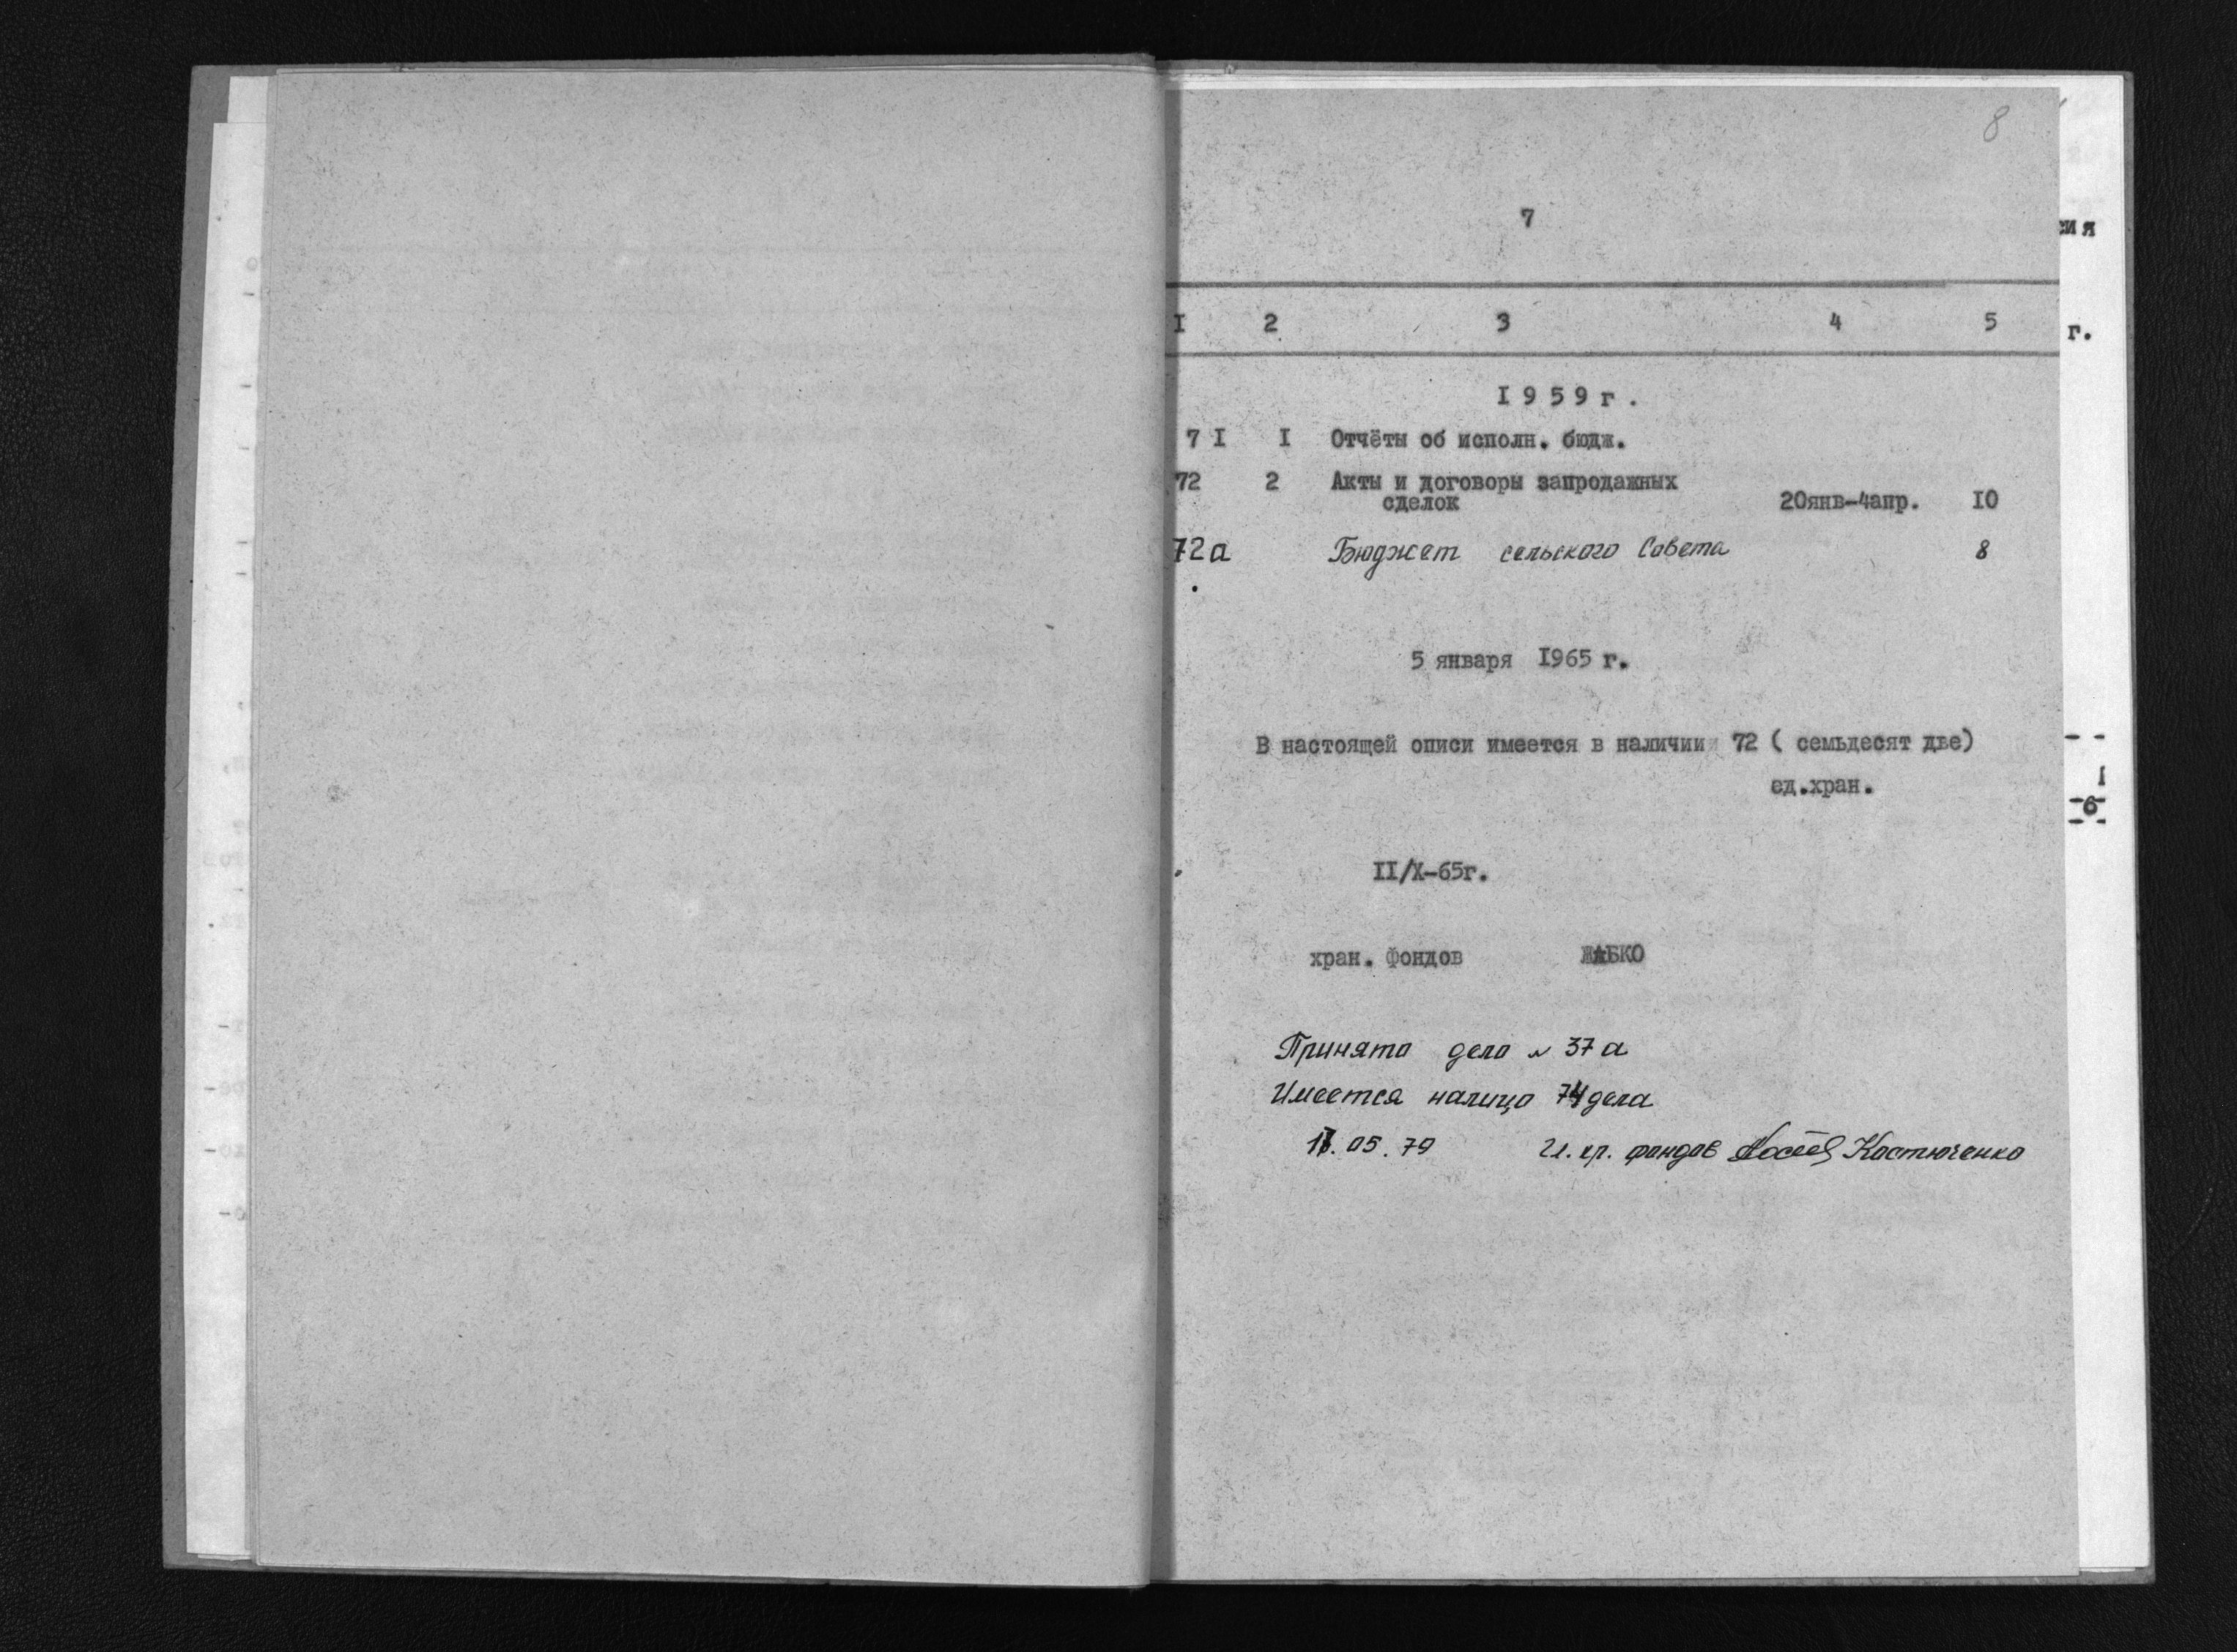 8
7
I 2 3 4 5
I959г.
7I I Отчёты об исполн. бюдж.
72 2 Акты и договоры запродажных
сделок 20янв-4апр. IO
72а Бюджет сельского Совета 8
5 января I965 г.
В настоящей описи имеется в наличии 72 ( семьдесят две)
ед.хран.
II/X-65г.
хран. фондов ЖАБКО
Принято дело № 37а
Имеется налицо 74 дела
05.79 хр. фондов Костюченко
сия
г.
6